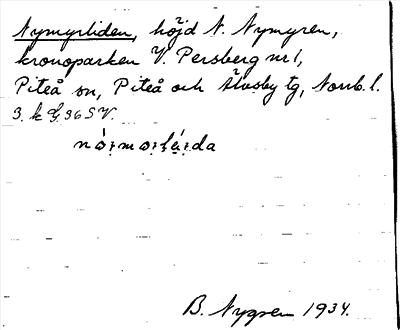 Nymyrliden, höjd N. Nymyren,
kronoparken V. Persberg nr 1,
Piteå sn, Piteå och Älvsby tg, Norrb. l.
3. k G. 36 S V.
B. Nygren 1934.